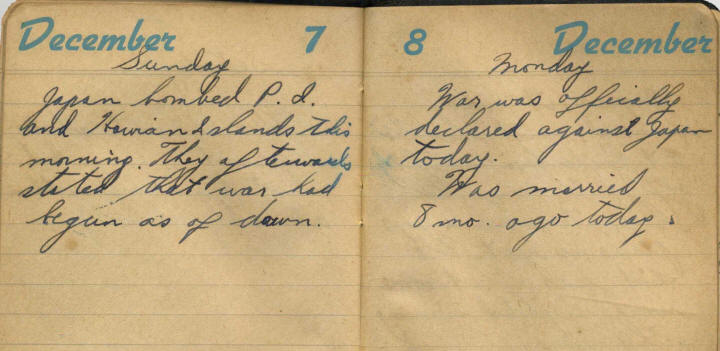 December 7
Sunday
Japan bombed P. I.
and Hawian Islands this
morning. They afterwards
stated that war had
begun as of dawn.
8 December
Monday
War was officially
declared against Japan
today.
Was married
8 mo. ago today.